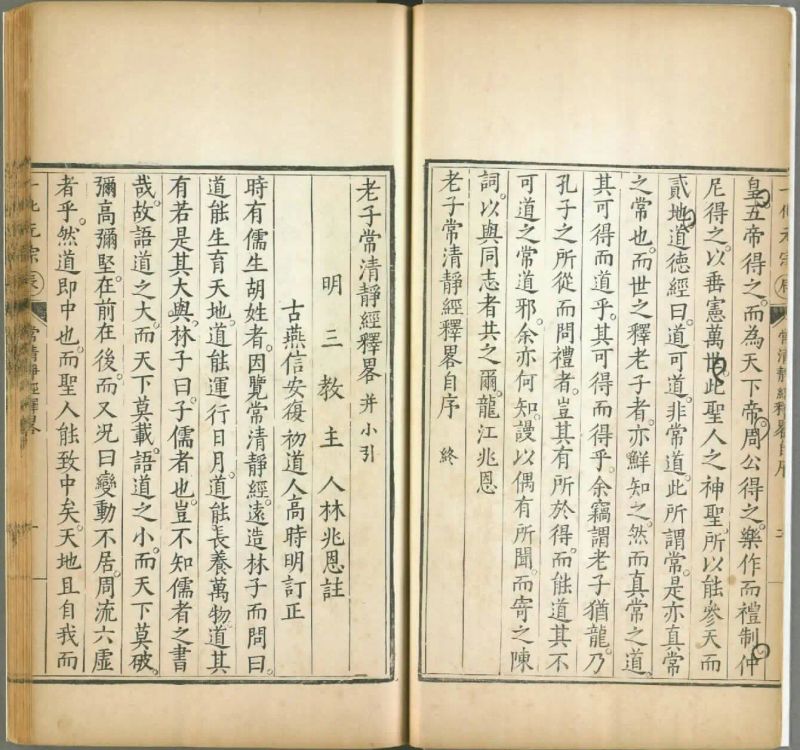 皇五帝得之。而為天下帝。周公得之。樂作而禮制。仲
尼得之。以垂憲萬世。此聖人之神聖。所以能參天而
貳地。道德經曰。道可道。非常道。此所謂常。是亦真常
之常也。而世之釋老子者。亦鮮知之。然而真常之道。
其可得而道乎。其可得而得乎。余竊謂老子猶龍。乃
孔子之所從而問禮者。豈其有所於得。而能道其不
可道之常道邪。余亦何知。謾以偶有所聞。而寄之陳
詞。以與同志者共之爾。龍江兆恩
老子常清靜經釋畧自序 終
老子常清靜經釋畧 并小引
明三教主人林兆恩註
古燕信安復初道人高時明訂正
時有儒生胡姓者。因覽常清靜經。遠造林子而問曰。
道能生育天地。道能運行日月。道能長養萬物。道其
有若是其大與。林子曰。子儒者也。豈不知儒者之書
哉。故語道之大。而天下莫載。語道之小。而天下莫破。
彌高彌堅。在前在後。而又况曰變動不居。周流六虛
者乎。然道即中也。而聖人能致中矣。天地且自我而
常清靜經釋畧 一